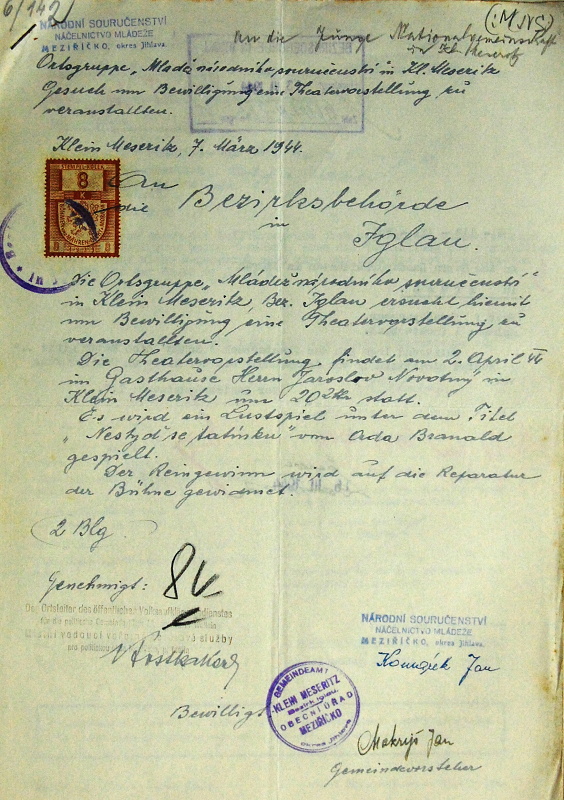 6/142
NÁRODNÍ SOURUČENSTVÍ
NÁČELNICTVO MLÁDEŽE
MEZIŘÍČKO, okres Jihlava.
(MNS)
An die Junge Nationalgemeinschaft
in Kl. Meseritz
Ortsgruppe „Mládež národního souručenství in Kl. Meseritz
Gesuch um Bewilligung eine Theatervorstellung zu
veranstallten.
Klein Meseritz, 7. März 1944.
An
die Bezirksbehörde
in
Iglau.
8
K
8 8
Die Ortsgruppe „Mládež národního souručenství"
in Klein Meseritz, Bez. Iglau ersucht hiemit
um Bewilligung eine Theatervorstellung zu
veranstallten.
Die Theatervorstellung findet am 2. April 44
im Gasthause Herrn Jaroslov Novotný" in
Klein Meseritz um 20 Uhr statt.
Es wird ein Lustspiel unter dem Titel
„Nestyď se tatínku" von Orda Branald
gespielt.
Der Reingewinn wird auf die Reparatur
der Bühne gewidmet.
2 Blg
Genehmigt:
8 K
Der Ortsleiter des öffentlichen Volksaufklärungsdienstes
für die politische Gemeinde
NÁRODNÍ SOURUČENSTVÍ
NÁČELNICTVO MLÁDEŽE
MEZIŘÍČKO, okres Jihlava.
Komárek Jan
GEMEINDEAMT
KLEIN MESERITZ
Bezirk Iglau.
OBECNÍ ÚŘAD
MEZIŘÍČKO
Okres Jihlava
Bewilligt
Mokrýš Jan
Gemeindevorsteher